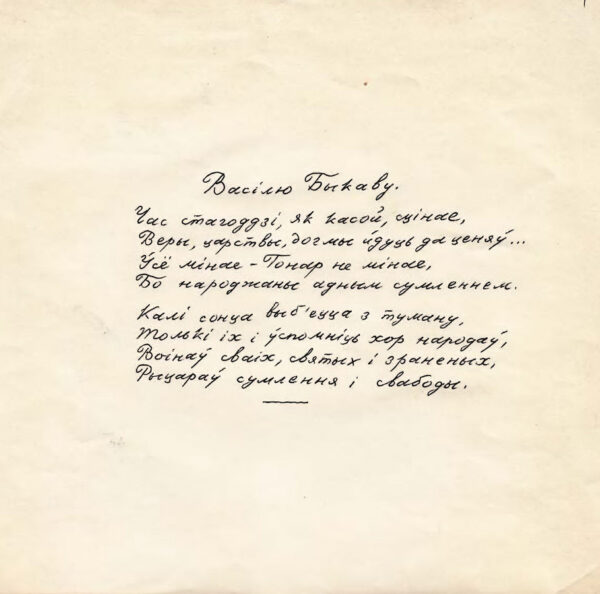 Васілю Быкаву.
Час стагоддзі, як касой, сцінае,
Веры, царствы, догмы йдуць да ценяў...
Ўсё мінае - Гонар не мінае,
Бо народжаны адным сумленнем.
Калі сонца выб'ецца з туману,
Толькі іх і ўспомніць хор народаў,
Воінаў сваіх, святых і зраненых,
Рыцараў сумлення і свабоды.